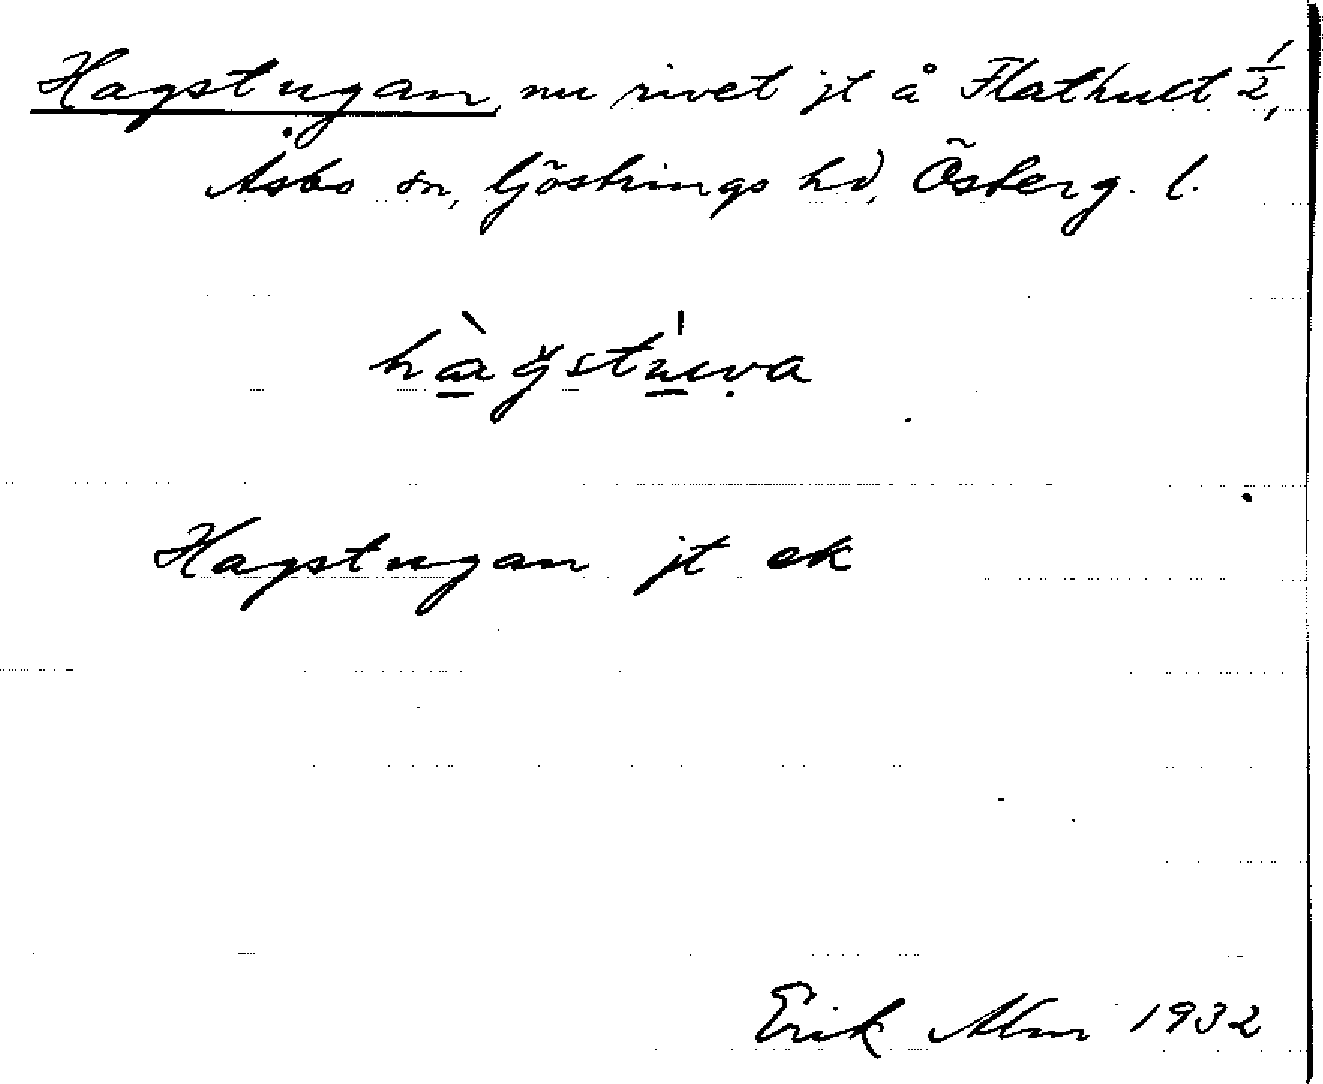 Hagstugan, nu rivet jt å Flathult 1/2,
Åsbo sn, Göstrings hd, Österg. l.
Hagstugan jt ek
Erik Alm 1932